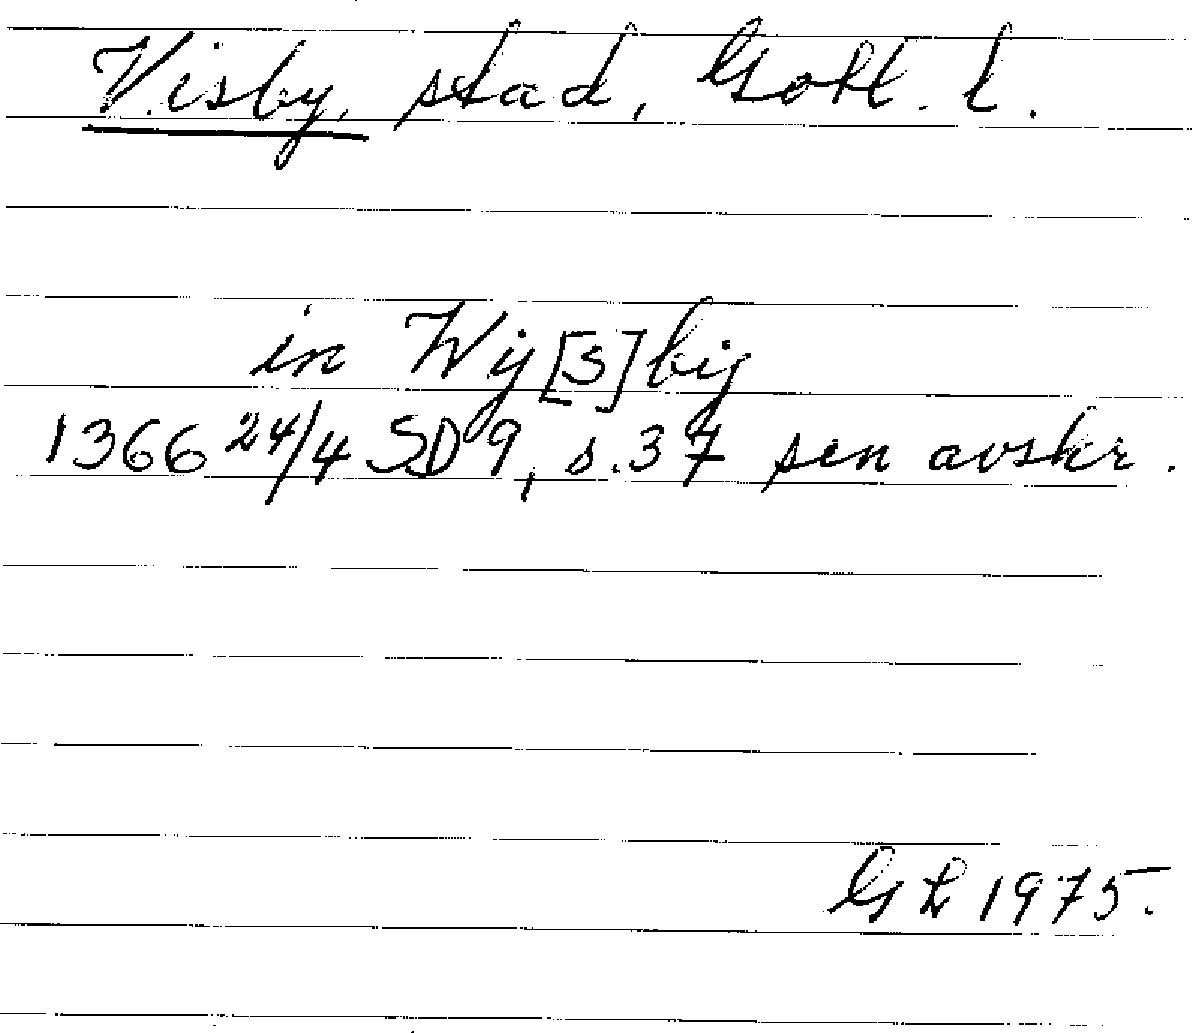 Visby, stad, Gotl. l.
in Wij[s]bij
1366 24/4 SD 9, s. 37 sen avskr.
GL 1975.